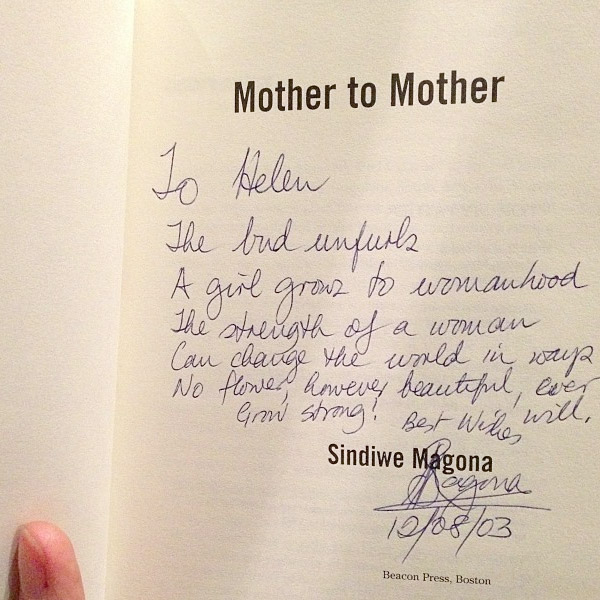 Mother to Mother
To Helen
The bud unfurls
A girl grows to womanhood
The strength of a woman
Can change the world in ways
No flower, however beautiful, ever will.
Grow strong!
Best Wishes
Sindiwe Magona
Magona
12/08/03
Beacon Press, Boston